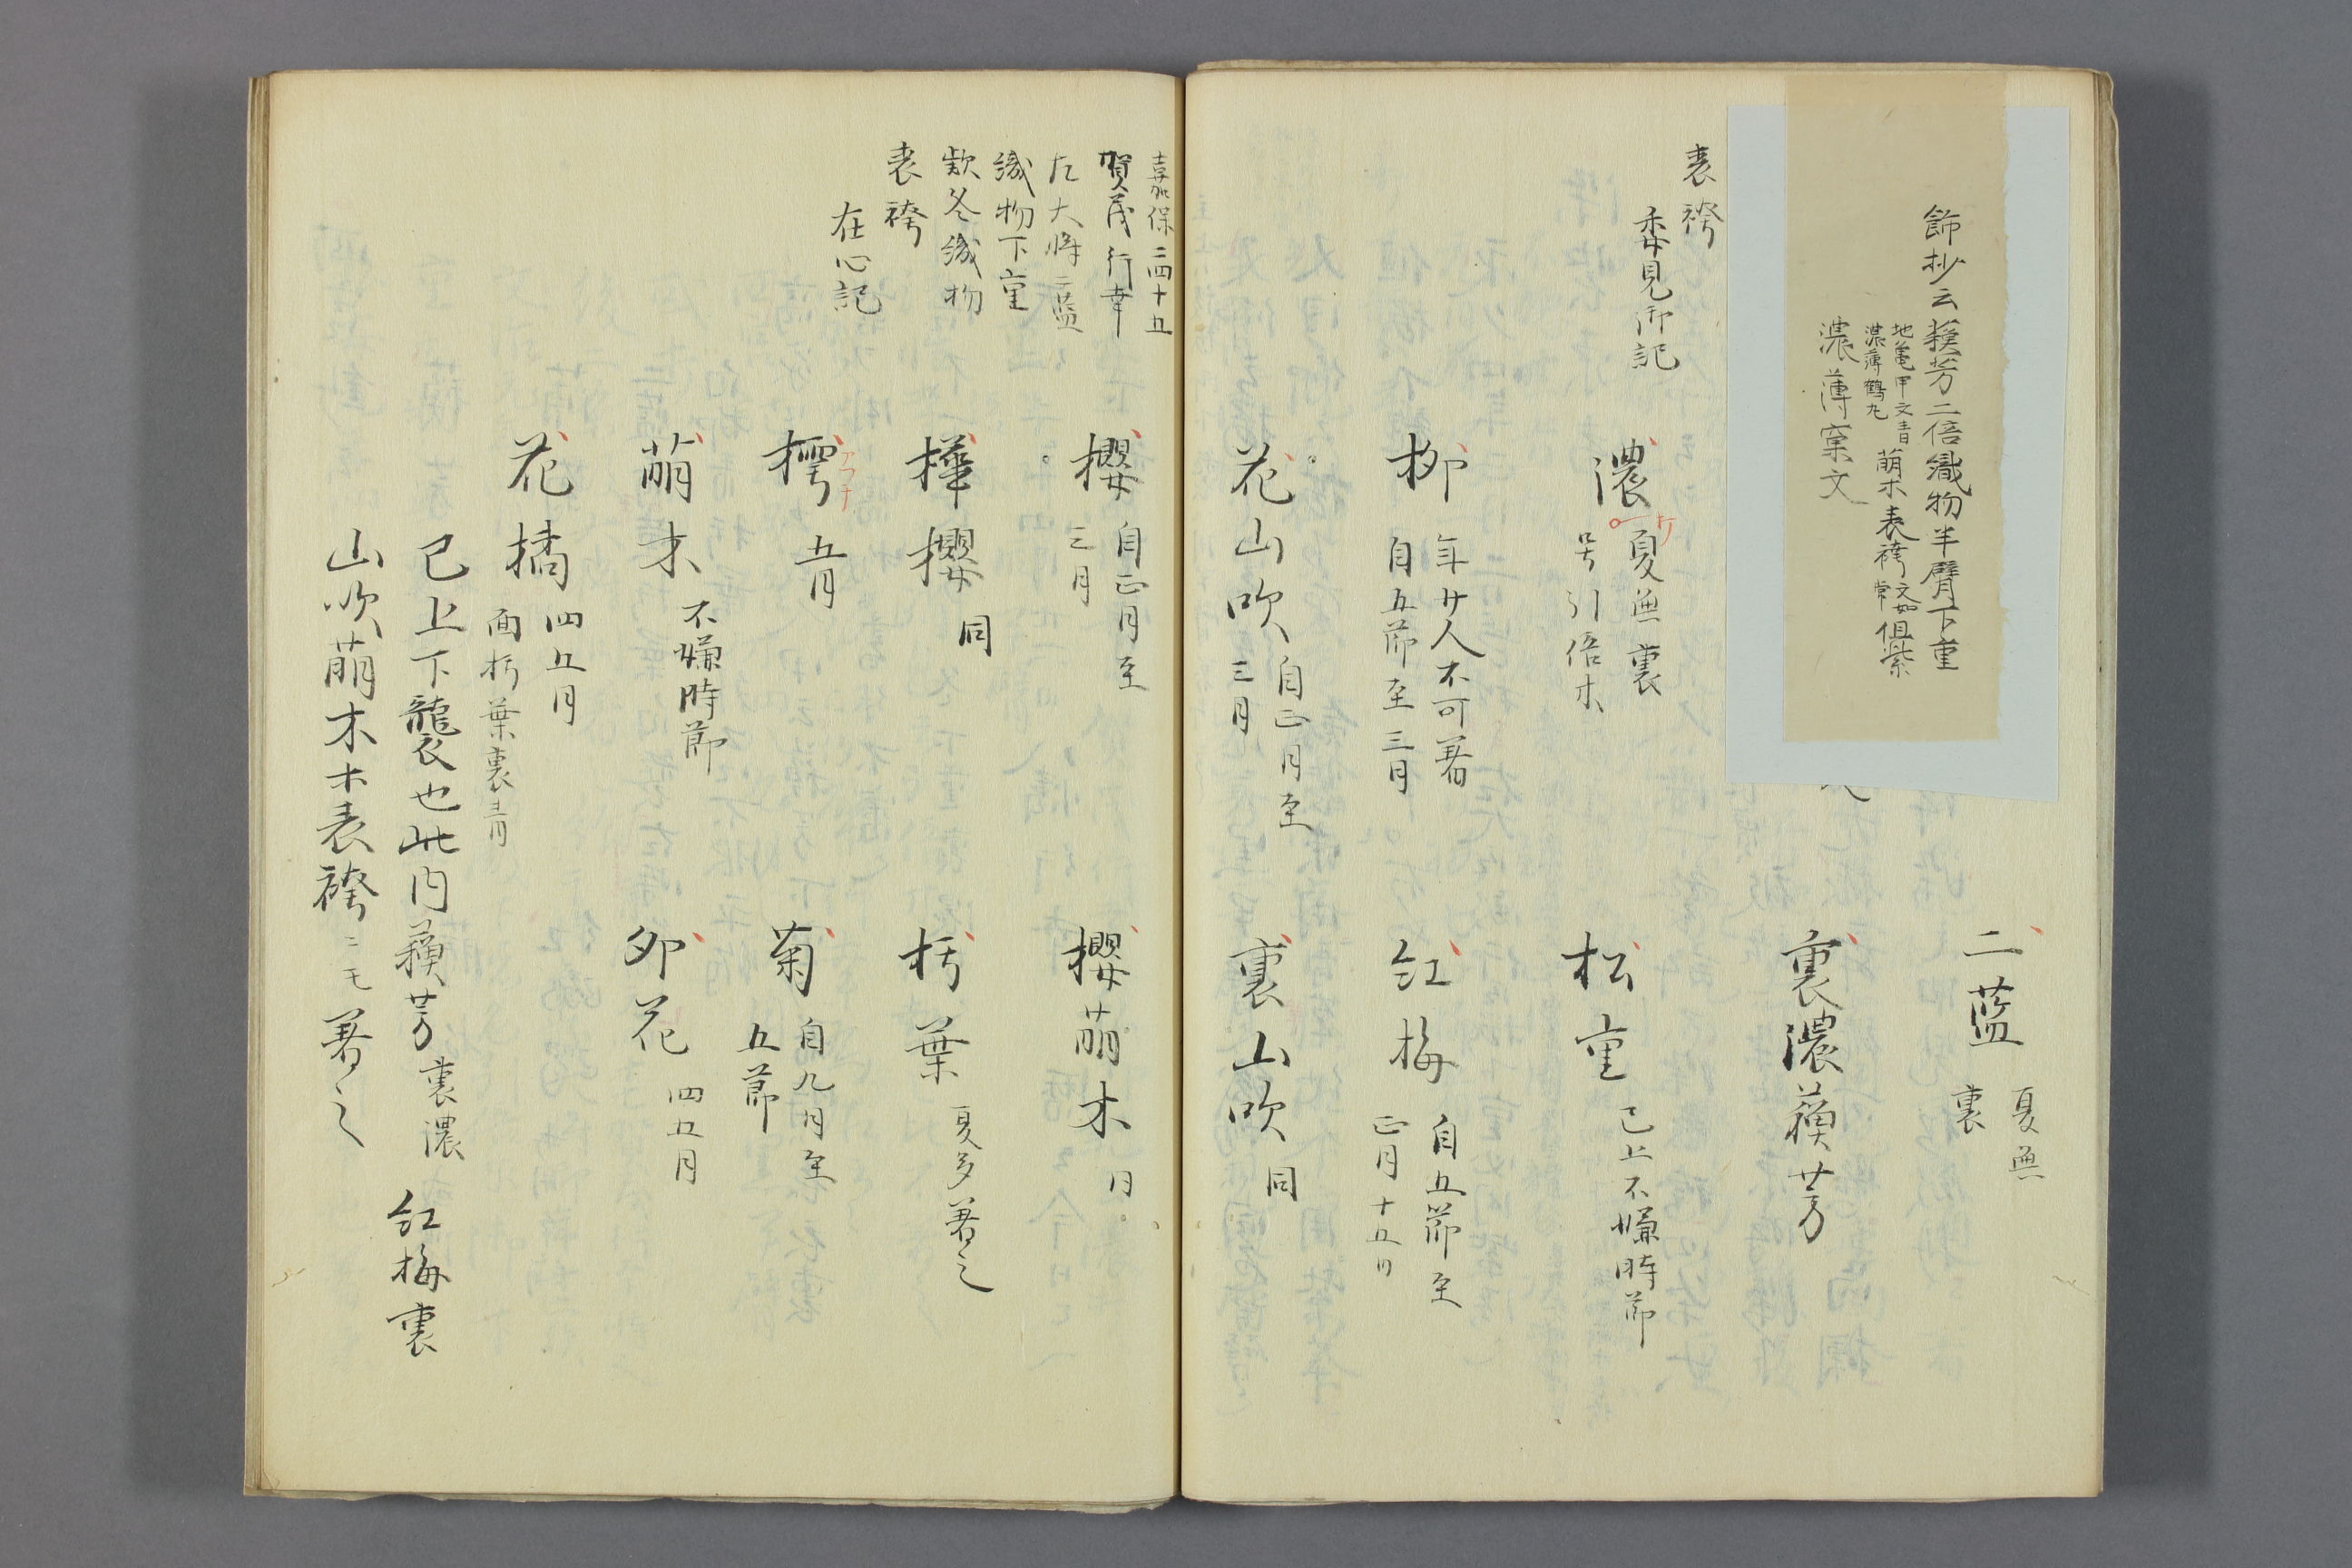 飾抄云蘓芳二倍織物半臂下重
地亀甲文青
濃薄鶴丸
萌木表袴文如常但紫
濃薄窠文
二藍
夏無
裏
裏濃蘓芳
表袴
委見御記
濃
夏無裏
号引倍木
松重
已上不嫌時節
柳
年廿人不可著
自五節至三月
紅梅
自五節至
正月十五日
花山吹
自正月至
三月
裏山吹
同
嘉保二四十五
賀茂行幸
左大将二藍
織物下重
欵冬織物
表袴
在心記
櫻
自正月至
三月
櫻萌木
同
樺櫻
同
朽葉
夏多著之
樗
アフチ
五月
菊
自九月至
五節
萌木
不嫌時節
卯花
四五月
花橘
四五月
面朽葉裏青
已上下襲也此内蘓芳裏濃 紅梅裏
山吹萌木木表袴ニモ著之